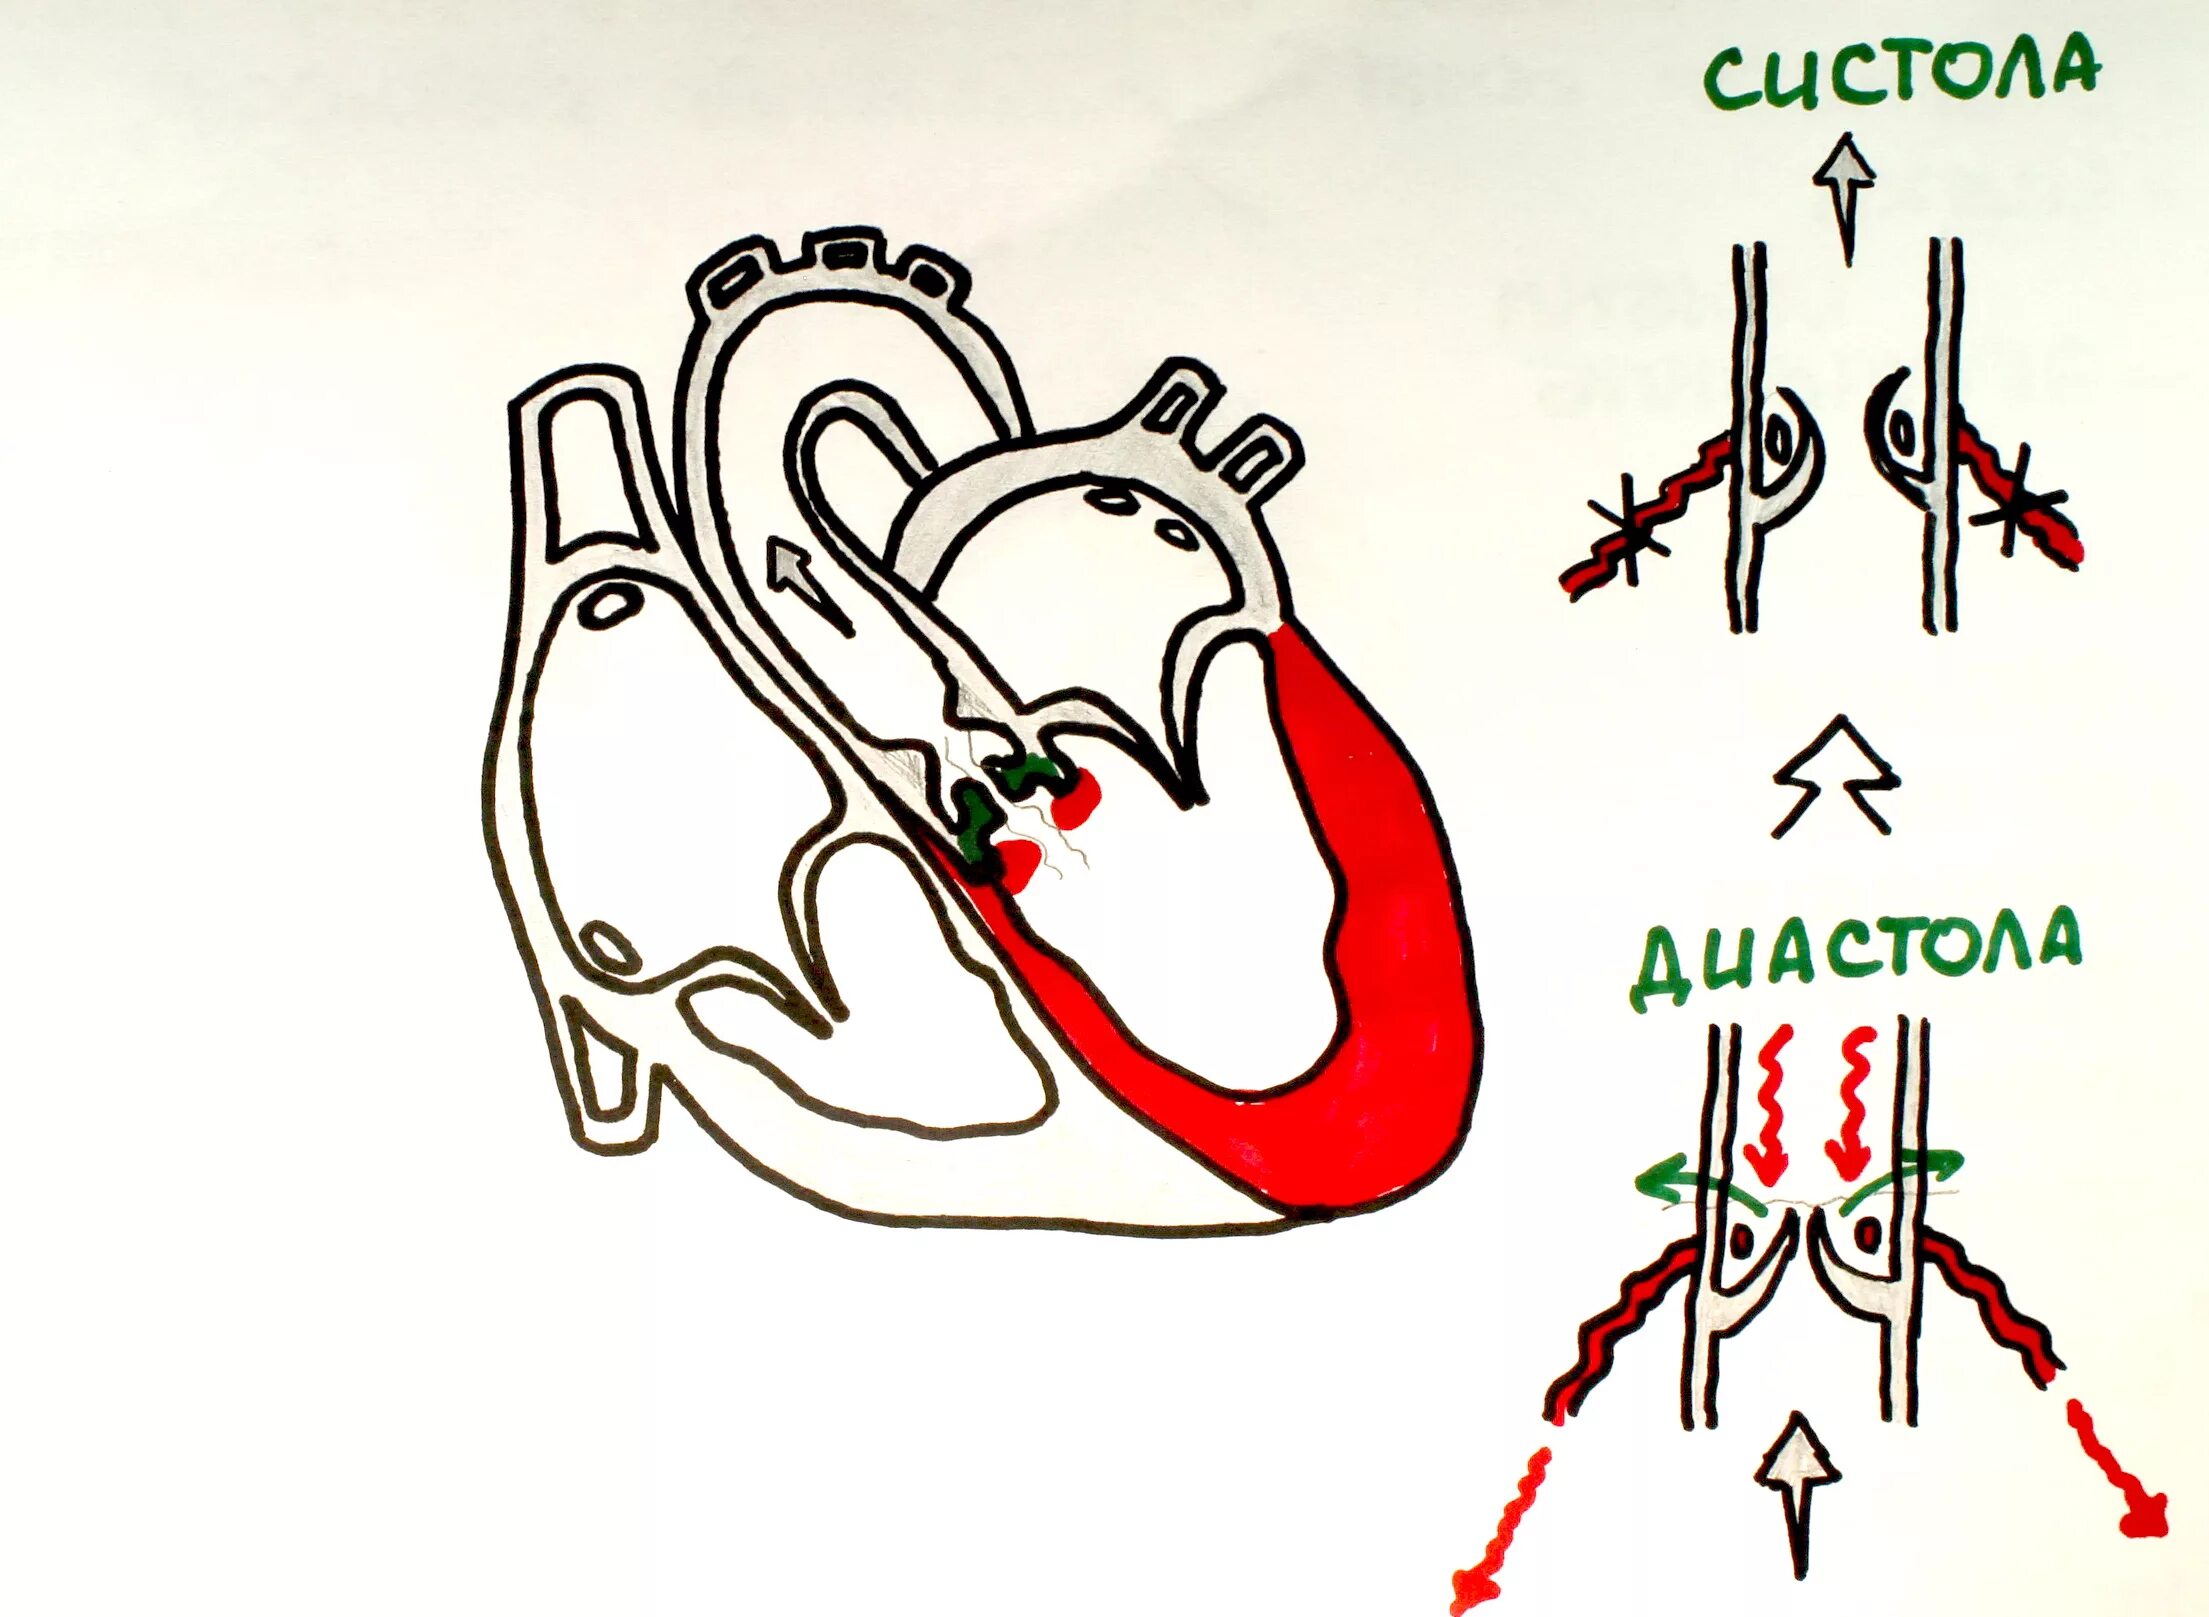 СИСТОЛА
ДИАСТОЛА